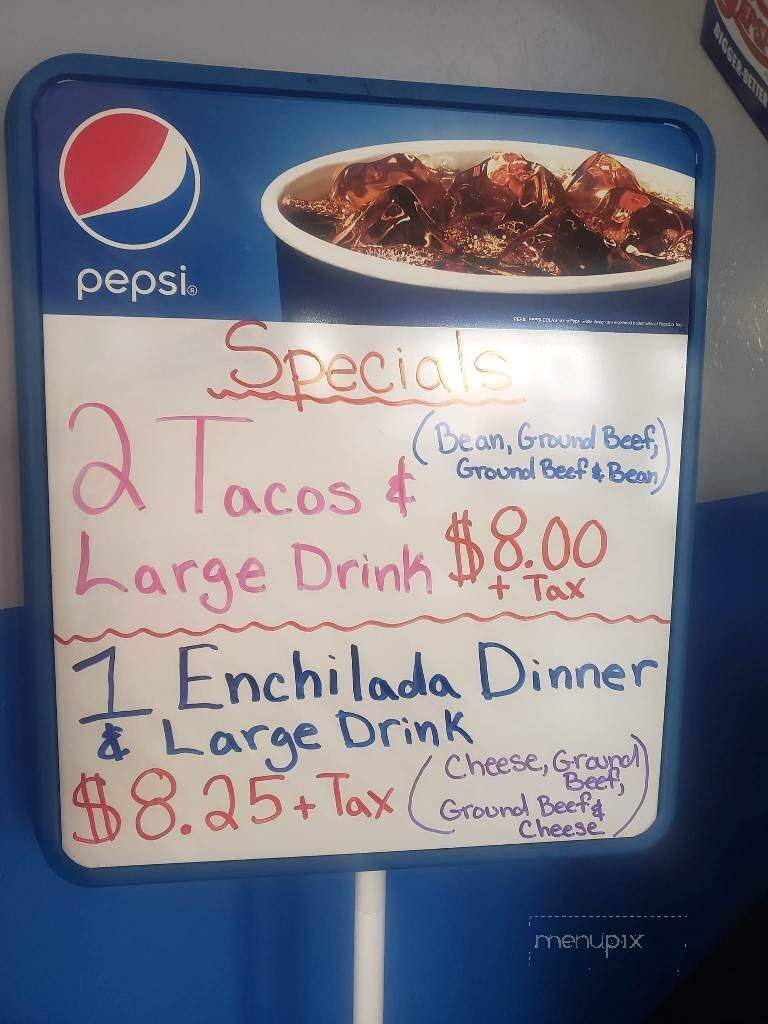 BIGGER-BETTER
pepsi®
Specials
2 Tacos &
(Bean, Ground Beef,
Ground Beef & Bean)
Large Drink $8.00
+ Tax
1 Enchilada Dinner
& Large Drink
$8.25 + Tax
(Cheese, Ground
Beef,
Ground Beef &
Cheese)
menupix